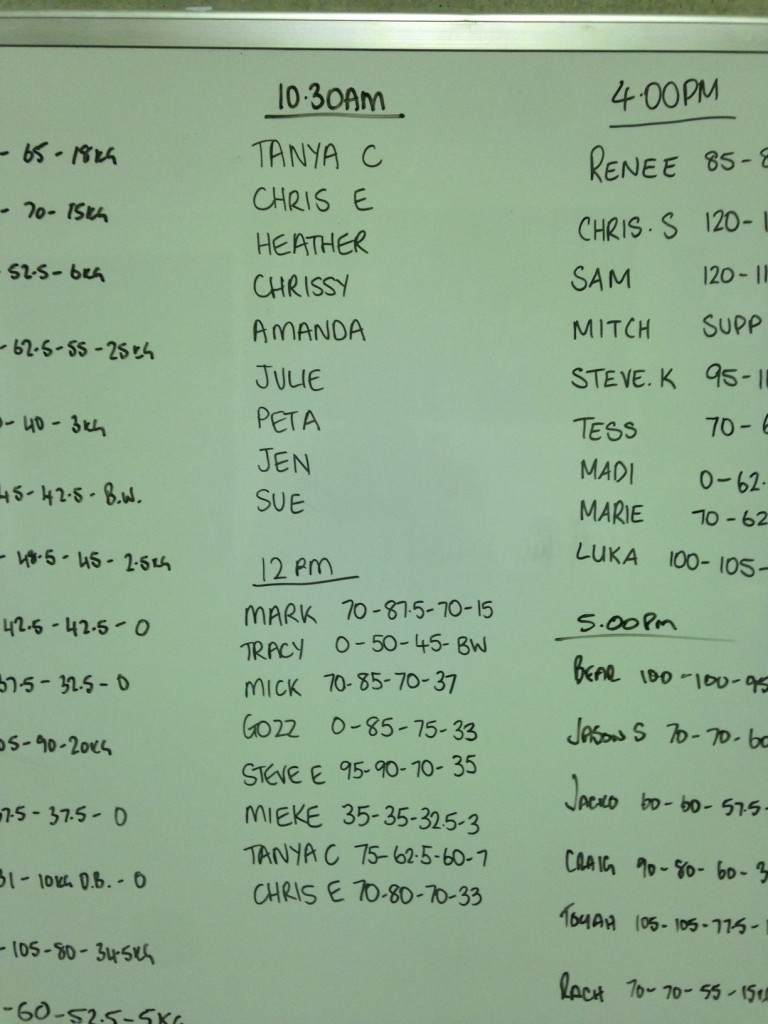 - 65 - 18KG
- 70 - 15KG
52.5 - 6KG
- 62.5 - 55 - 25KG
- 40 - 3KG
45 - 42.5 - B.W.
- 45 - 2.5KG
42.5 - 42.5 - 0
37.5 - 32.5 - 0
- 90 - 20KG
37.5 - 37.5 - 0
- 10KG D.B. - 0
- 105 - 80 - 34.5KG
- 60 - 52.5 - 5KG
10.30AM
TANYA C
CHRIS E
HEATHER
CHRISSY
AMANDA
JULIE
PETA
JEN
SUE
12 PM
MARK 70-87.5-70-15
TRACY 0-50-45-BW
MICK 70-85-70-37
GOZZ 0-85-75-33
STEVE E 95-90-70-35
MIEKE 35-35-32.5-3
TANYA C 75-62.5-60-7
CHRIS E 70-80-70-33
4.00PM
RENEE 85-8
CHRIS. S 120-1
SAM 120-11
MITCH SUPP
STEVE. K 95-11
TESS 70-6
MADI 0-62.
MARIE 70-62
LUKA 100-105-
5.00PM
BEAR 100-100-95
JASON S 70-70-60
JACKO 60-60-57.5-
CRAIG 90-80-60-3
TOMAH 105-105-77.5-1
RACH 70-70-55-15KG